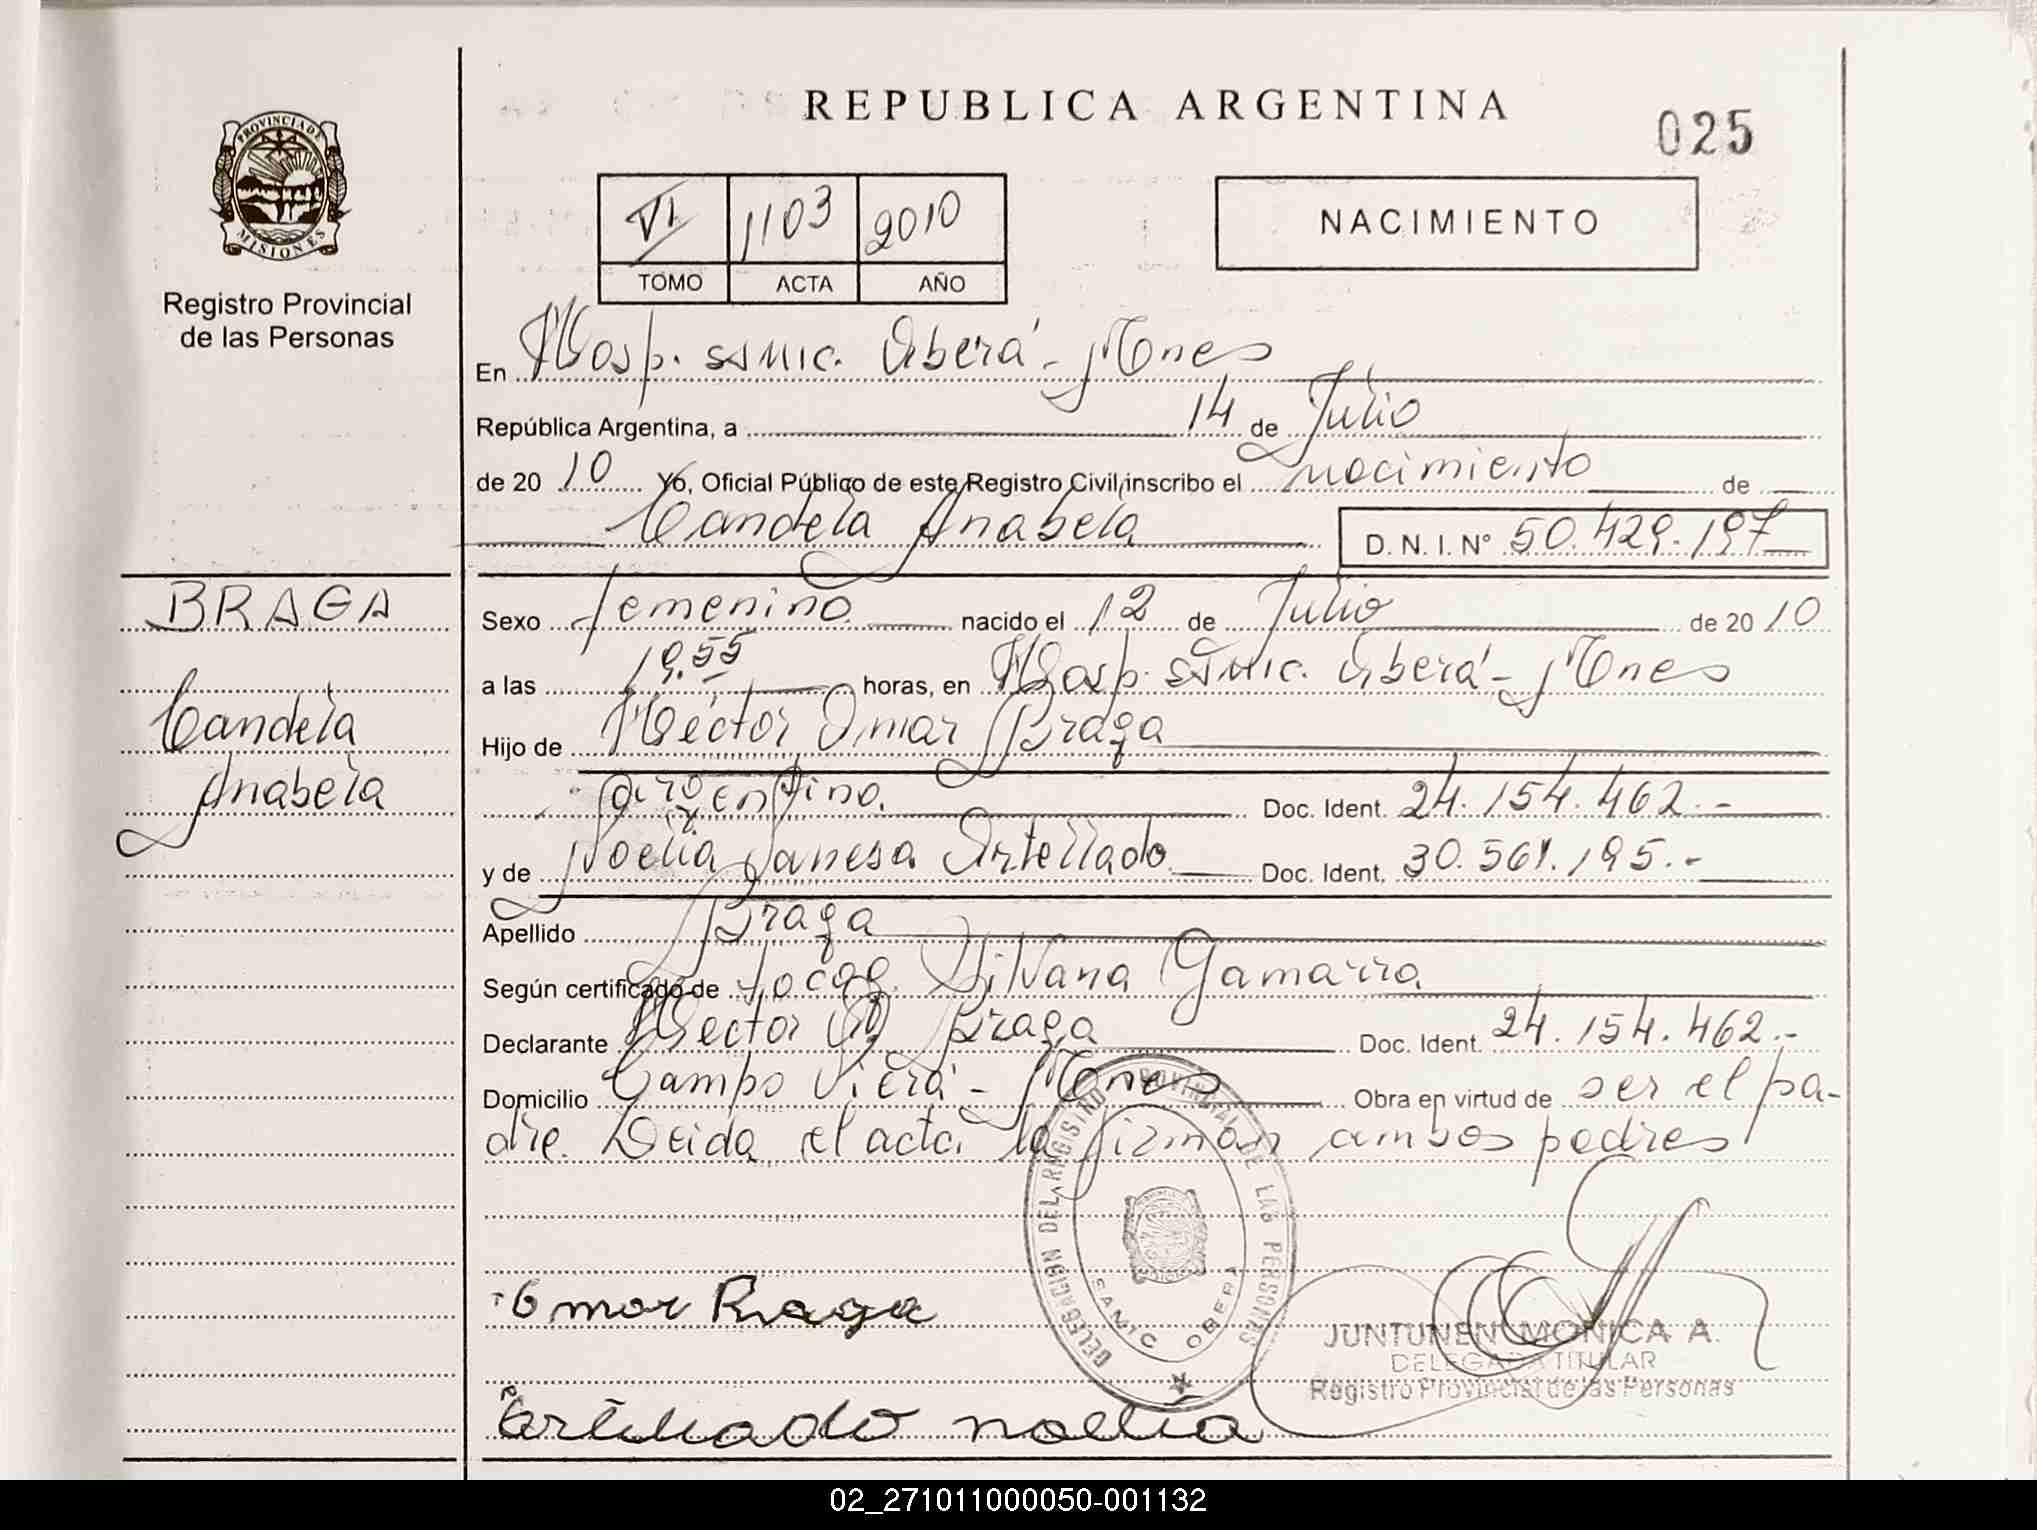 REPUBLICA ARGENTINA
025
PROVINCIA DE
MISIONES
Registro Provincial
de las Personas
VI 1103 2010
TOMO ACTA AÑO
NACIMIENTO
En Hosp. SAMIC. Oberá - Mones
República Argentina, a 14 de Julio
de 20 10 Yo, Oficial Público de este Registro Civil inscribo el nacimiento de
Candela Anabela D. N. I. N° 50.429.197
BRAGA
Candela
Anabela
Sexo femenino nacido el 12 de Julio de 20 10
a las 19.55 horas, en Hosp. SAMIC. Oberá - Mones
Hijo de Héctor Omar Braga
argentino Doc. Ident. 24.154.462.-
y de Noelia Vanesa Artellado Doc. Ident. 30.561.195.-
Apellido Braga
Según certificado de Tocog. Silvana Gamarra
Declarante Hector O. Braga Doc. Ident. 24.154.462.-
Domicilio Campo Viera - Mones Obra en virtud de ser el pa-
dre. Leida el acta la firman ambos padres
DELEGACION DEL REGISTRO PROVINCIAL DE LAS PERSONAS
SAMIC OBERA
Omar Braga
JUNTUNEN MONICA A.
DELEGADA TITULAR
Registro Provincial de las Personas
Artellado noelia
02_271011000050-001132